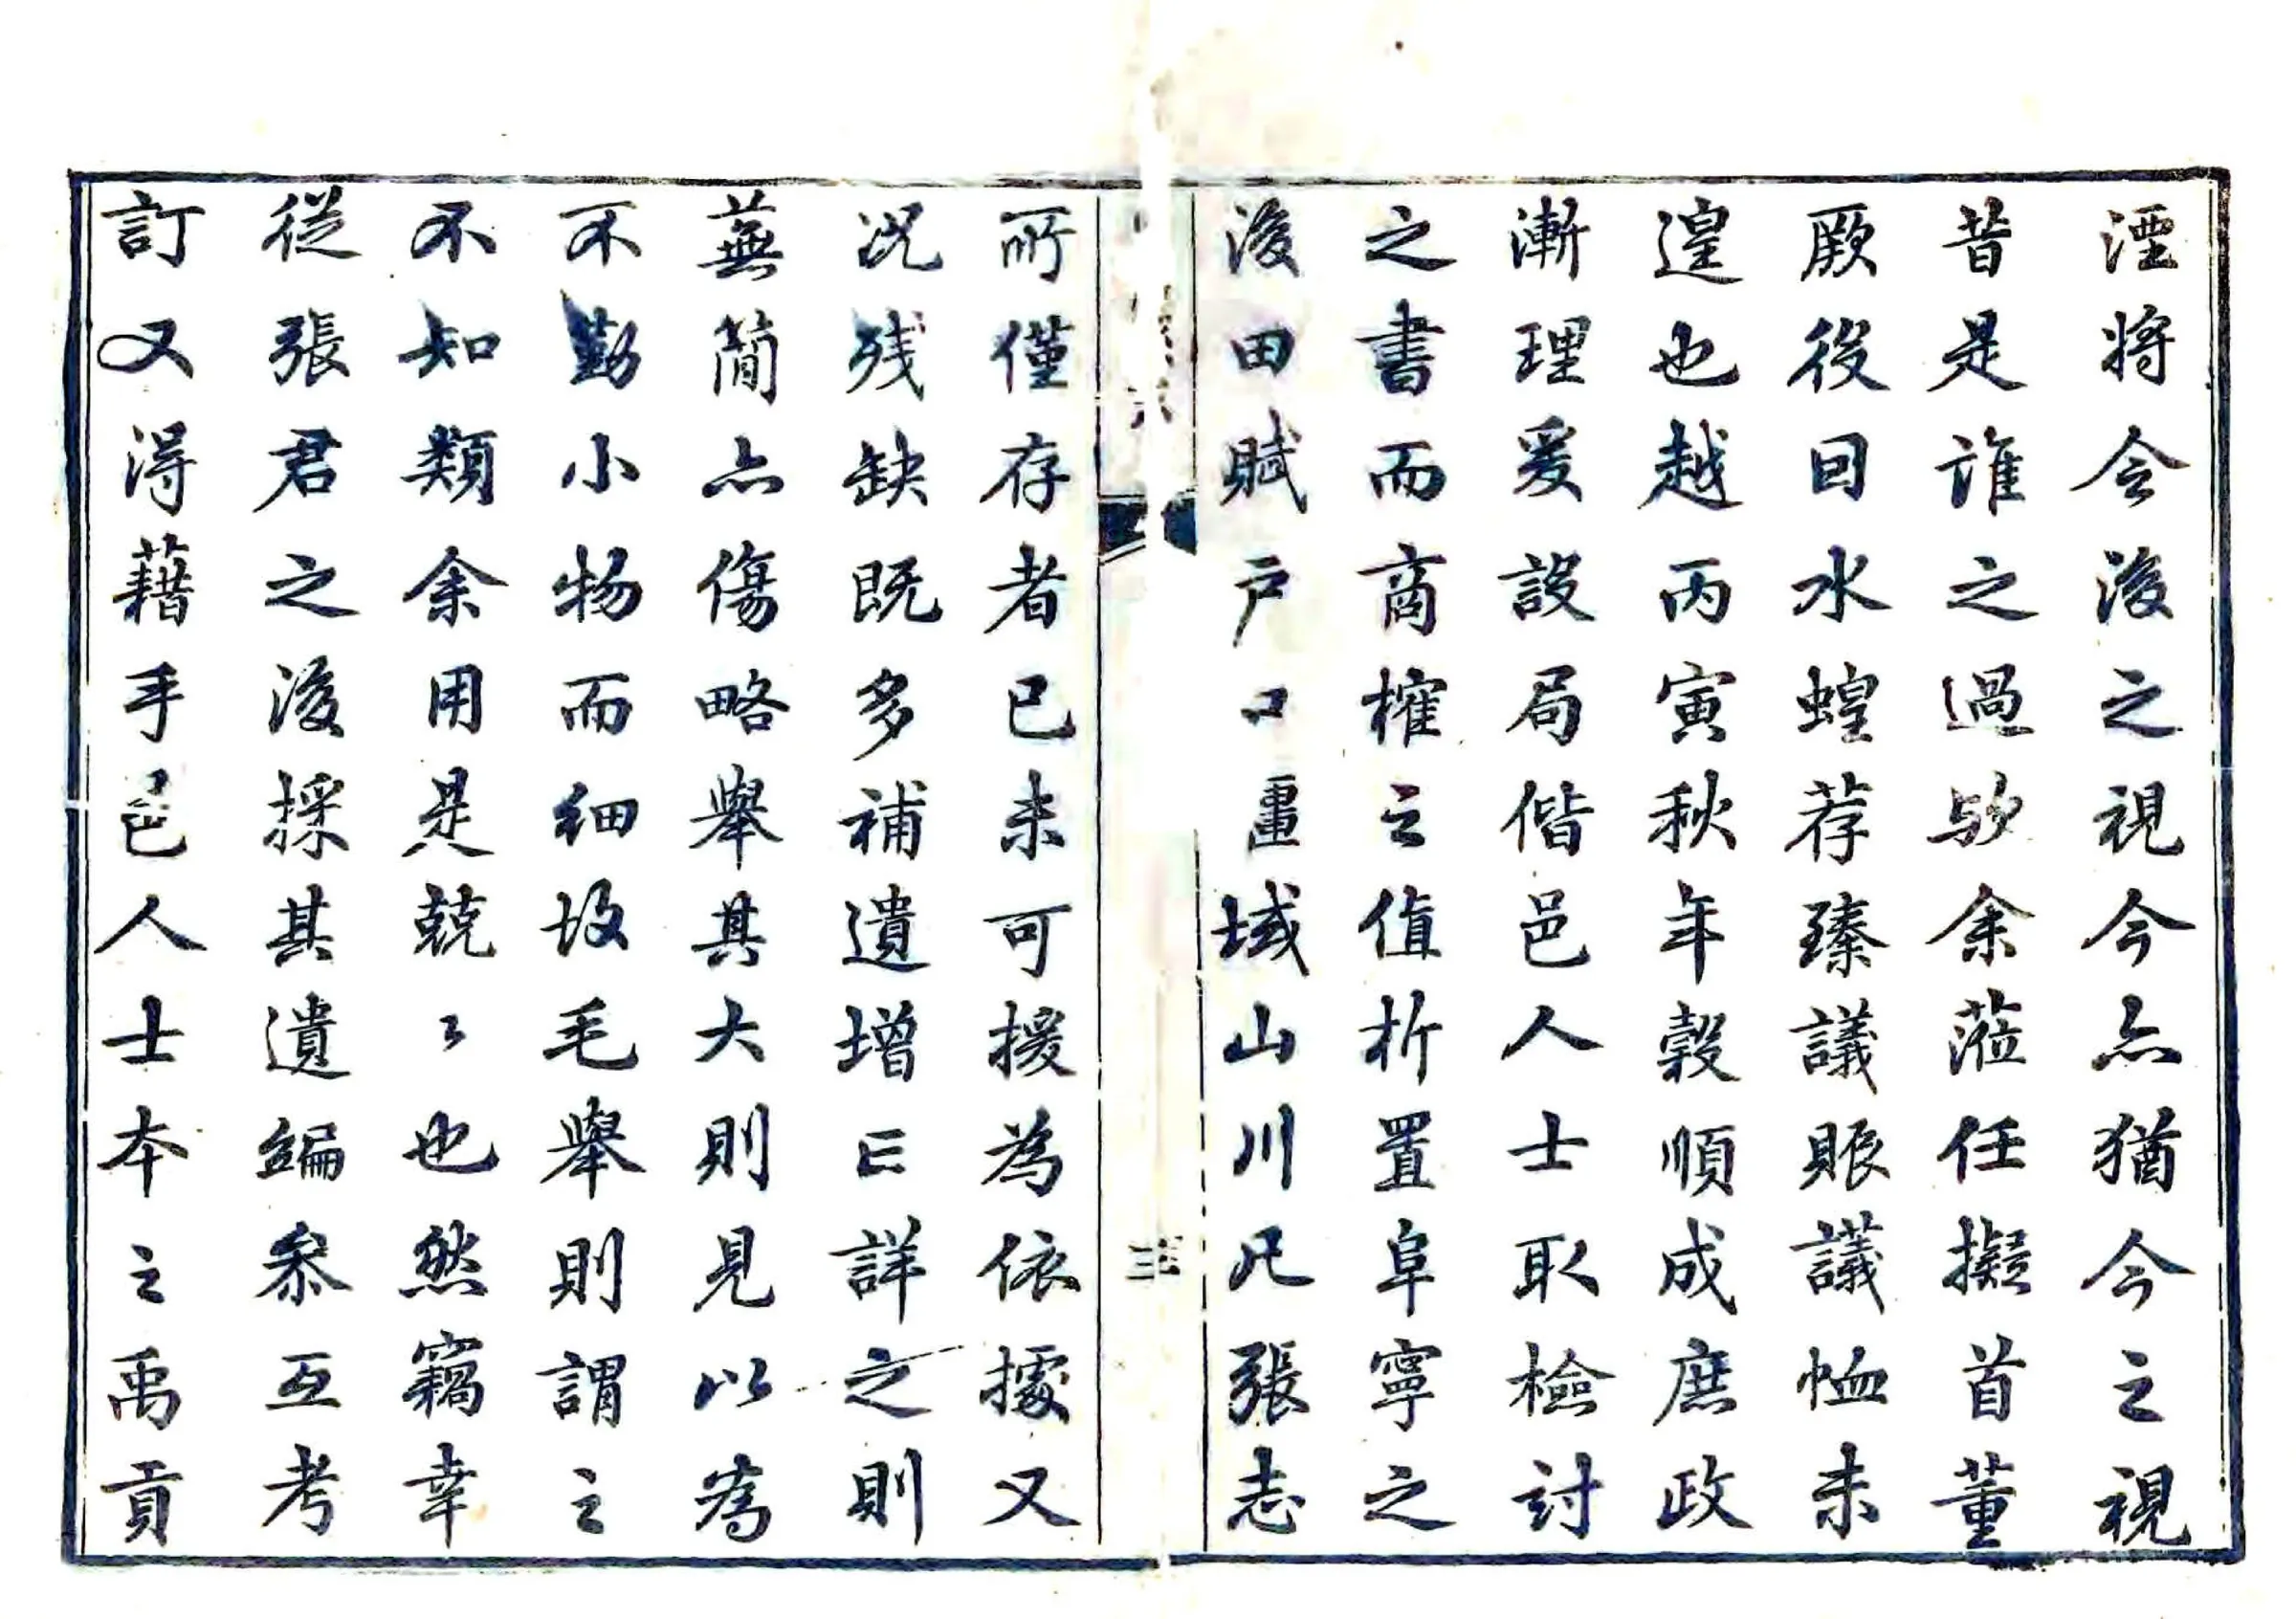 湮將令後之視今亦猶今之視
昔是誰之過歟余蒞任擬首董
厥役因水蝗荐臻議賑議恤未
遑也越丙寅秋年穀順成庶政
漸理爰設局偕邑人士取檢討
之書而商榷之值析置阜寧之
後田賦戶口畺域山川凡張志
三
所僅存者已未可援為依據又
况残缺既多補遺增亡詳之則
蕪簡亦傷略舉其大則見以為
不勤小物而細故毛舉則謂之
不知類余用是兢〻也然竊幸
從張君之後採其遺編叅互考
訂又得藉手邑人士本之禹貢